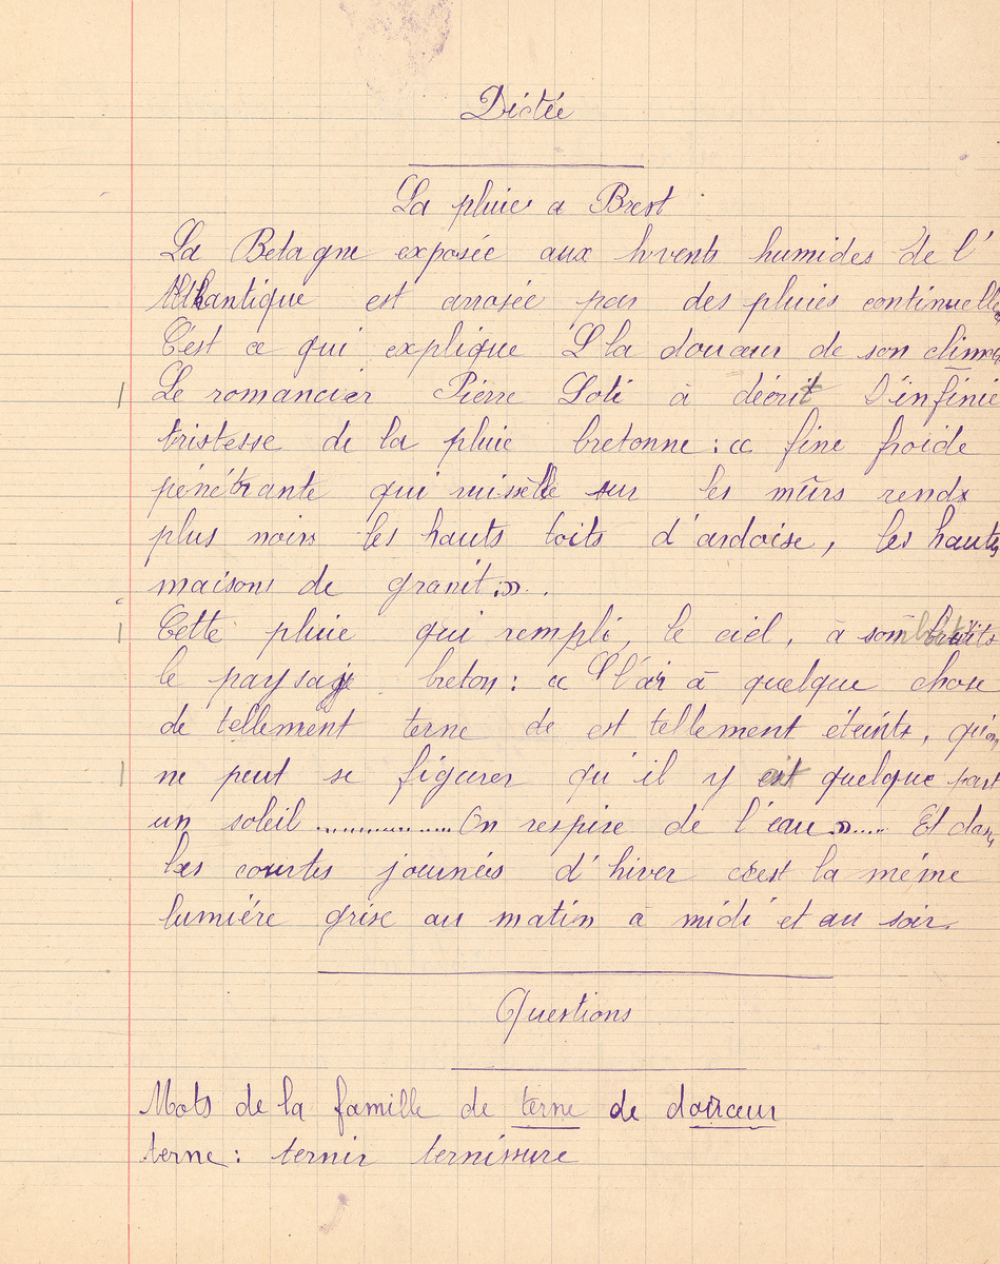 Dictée
La pluie a Brest
La Betagne exposée aux vents humides de l'
Atlantique est arrosée par des pluies continuelles
C'est ce qui explique la douceur de son climat
Le romancier Pierre Loti à décrit l'infinie
tristesse de la pluie bretonne : « fine froide
pénétrante qui ruiselle sur les mûrs rends
plus noirs les hauts toits d'ardoise, les hautes
maisons de granit ».
Cette pluie qui rempli, le ciel, à
le paysage breton : « l'air à quelque chose
de tellement terne de et tellement éteints, qu'on
ne peut se figurer qu'il y ait quelque part
un soleil .............. On respire de l'eau »..... Et dans
les courtes journées d'hiver c'est la même
lumiére grise au matin à midi et au soir.
Questions
Mots de la famille de terne de douceur
terne : ternir ternissure